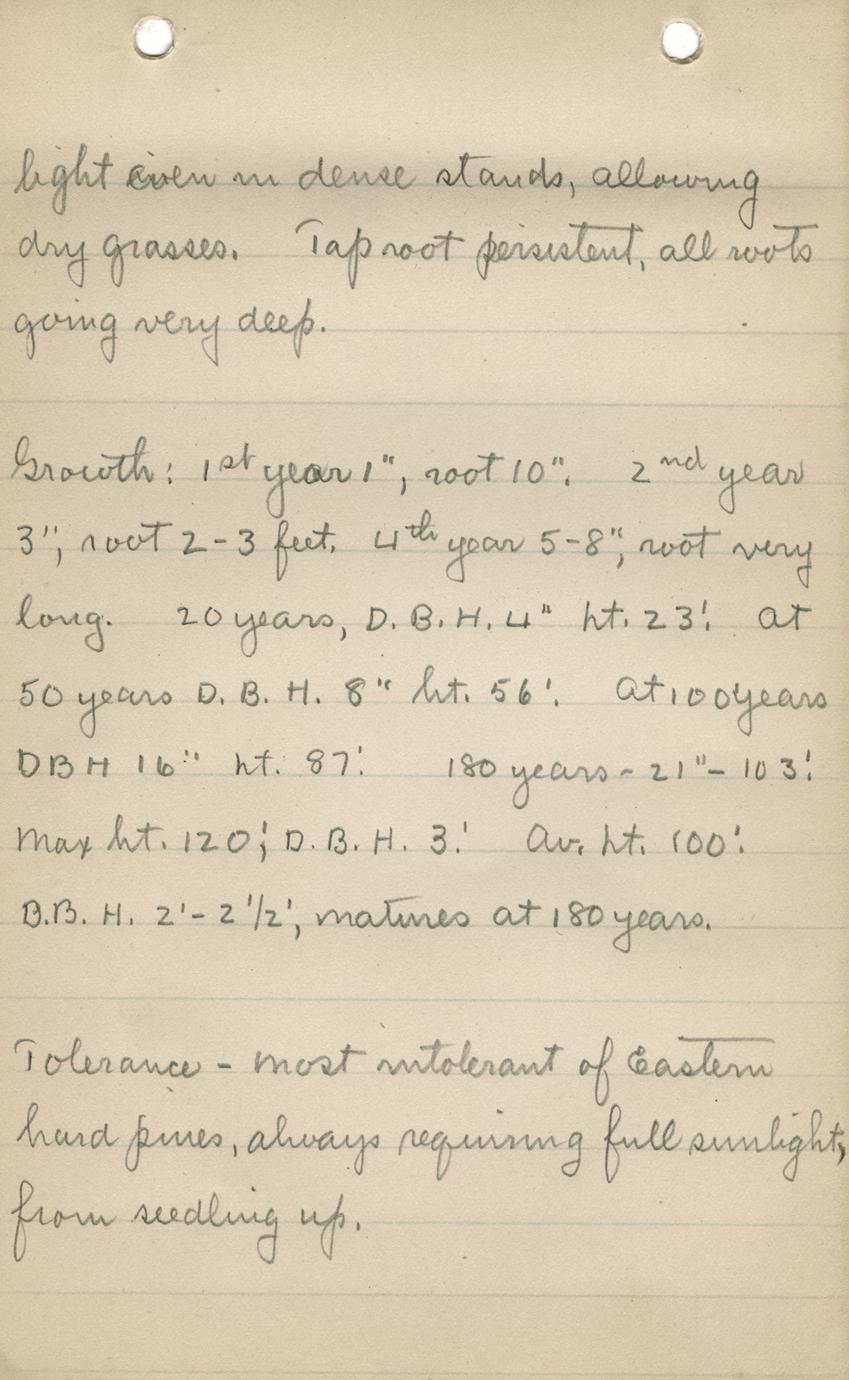 light even in dense stands, allowing
dry grasses. Tap root persistent, all roots
going very deep.
Growth: 1st year 1", root 10". 2nd year
3", root 2-3 feet. 4th year 5-8", root very
long. 20 years, D.B.H. 4" ht. 23'. At
50 years D.B.H. 8" ht. 56'. At 100 years
DBH 16" ht. 87'. 180 years - 21" - 103'.
Max ht. 120'; D.B.H. 3'. Av. ht. 100'.
B.B.H. 2'- 2 1/2', matures at 180 years.
Tolerance - most intolerant of Eastern
hard pines, always requiring full sunlight,
from seedling up.